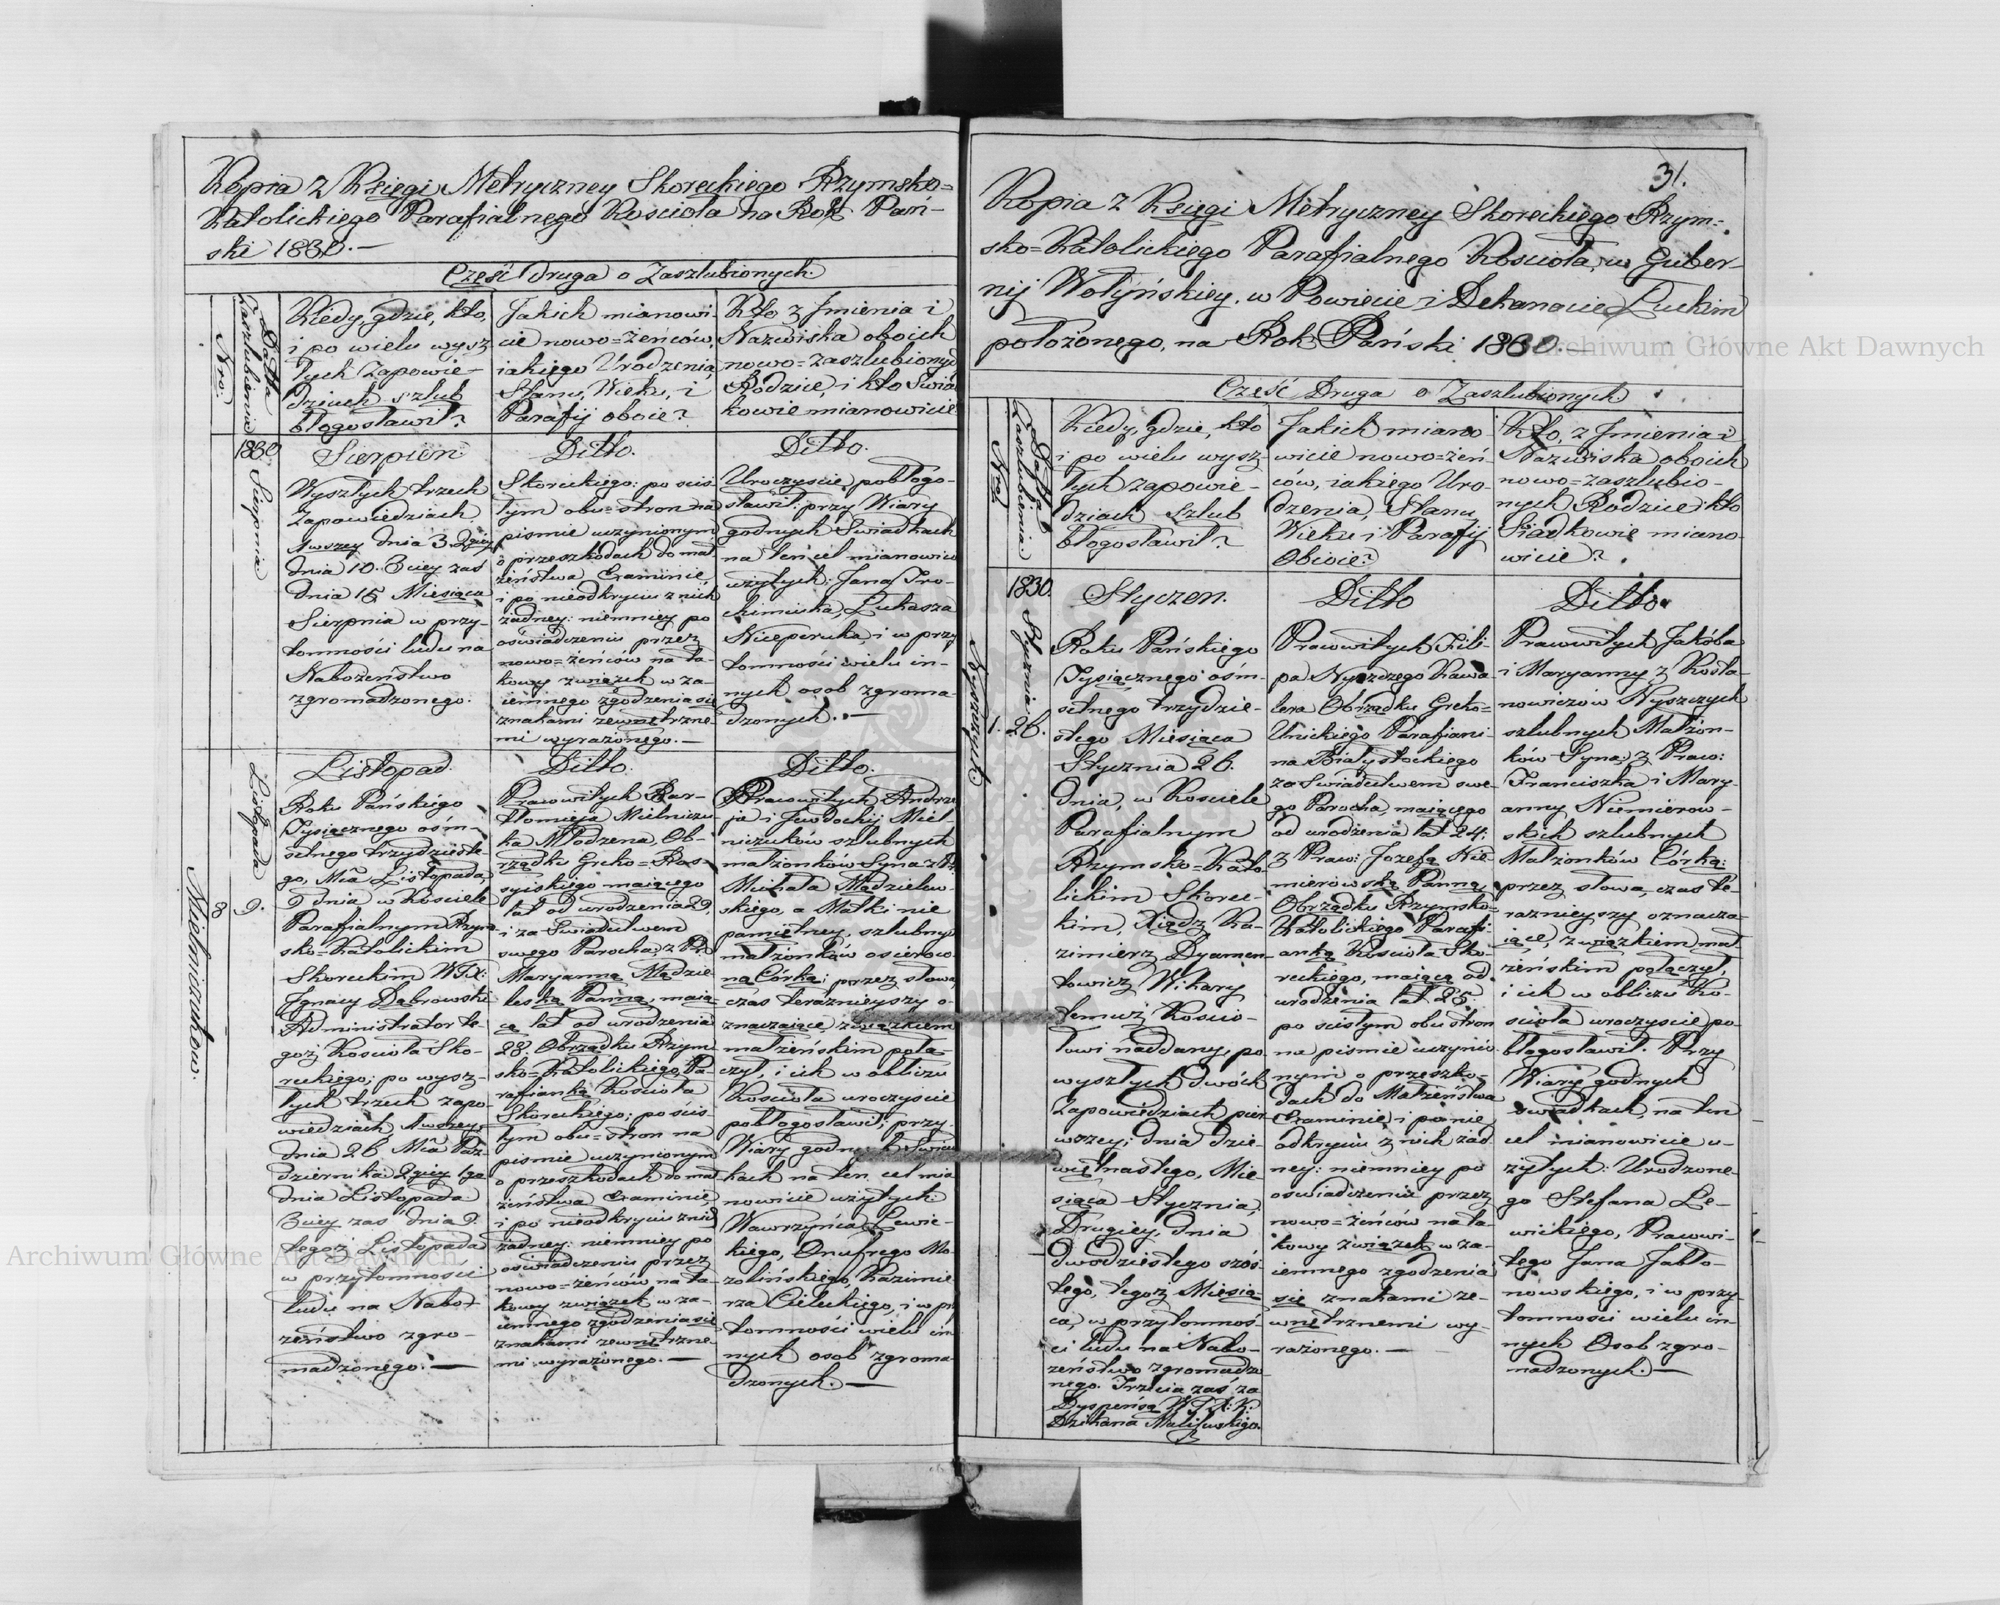 Kopia z Księgi Metryczney Skoreckiego Rzymsko=
Katolickiego Parafialnego Kościoła na Rok Pań-
ski 1830.—
Część druga o Zaszlubionych.
Nro:
Datta
Zaszlubienia
Kiedy, gdzie, kto,
i po wielu wysz
łych Zapowie-
dziach szlub
błogosławił?
Jakich mianowi-
cie nowo=żeńców,
iakiego Urodzenia,
Stanu, Wieku, i
Parafij oboie?
Kto z Jmienia i
Nazwiska oboich
nowo=zaszlubionych
Rodzice, i kto Świa
kowie mianowicie
1830
Sierpnia
Sierpień
Wyszłych trzech
Zapowiedziach
1wszey dnia 3 2giey
dnia 10. 3ciey zaś
dnia 15 Miesiąca
Sierpnia w przy-
tomności ludu na
Nabożeństwo
zgromadzonego.
Ditto.
Skoreckiego: po ścis
łym obu=stron na
pismie uczynionym
o przeszkodach do mał
żeństwa Examinie,
i po nieodkryciu z nich
żadney: niemniey po
oświadczeniu przez
nowo=żeńców na ta-
kowy związek w za-
iemnego zgodzenia się
znakami zewnętrzne-
mi wyrażonego.—
Ditto.
Uroczyście pobłogo-
sławił: przy Wiary
godnych Świadkach
na ten cel mianowicie
użytych: Jana Tro-
chimiuka, Łukasza
Niceperuka, i w przy
tomności wielu in-
nych osob zgroma-
dzonych.—
Mielniczukow.
8
Listopada
9.
Listopad.
Roku Pańskiego
Tysiącznego óśm-
setnego trzydzieste
go, Mca Listopada,
9 dnia w Kościele
Parafialnym Rzym
sko=Katolickim
Skoreckim WJX:
Jgnacy Dąbrowski
Administrator te-
goż Kościoła Sko-
reckiego; po wysz-
łych trzech zapo-
wiedziach 1wszey
dnia 26 Mca Paź
dziernika 2giey 1go
dnia Listopada
3ciey zaś dnia 9.
tegoż Listopada
w przytomności
ludu na Nabo-
żeństwo zgro-
madzonego.—
Ditto.
Pracowitych Bar-
tłomieja Mielniczu
ka Młodzena, Ob-
rządku Greko=Ros-
syiskiego maiącego
lat od urodzenia 29,
i za Świadectwem
swego Parocha, z Pr:
Maryanną Mądzie
leską Panną, maią
cą lat od urodzenia
28 Obrządku Rzym
sko=Katolickiego, Pa
rafianką Kościoła
Skoreckiego; po ścis
łym obu=stron na
pismie uczynionym
o przeszkodach do mał
żeństwa Examinie,
i po nieodkryciu z nich
żadney: niemniey po
oświadczeniu przez
nowo=żeńców na ta-
kowy związek w za-
iemnego zgodzenia się
znakami zewnętrzne-
mi wyrażonego.—
Ditto.
Pracowitych Andrze
ja i Jewdochij Miel-
niczuków szlubnych
małżonków Syna z Pr:
Michała Mądzielew-
skiego, a Matki nie
pamiętney, szlubny
małżonków osieroco-
ną Córką: przez słowa,
czas teraznieyszy o-
znaczaiące związkiem
małżeńskim połą
czył, i ich w obliczu
Kościoła uroczyście
pobłogosławił; przy-
Wiary godnych Świad
kach na ten cel mia
nowicie użytych:
Wawrzyńca Lewic-
kiego, Onufrego Mo-
zolińskiego, Kazimie
rza Cieleckiego, i w prz
tomności wielu in
nych osob zgroma-
dzonych.—
31.
Kopia z Księgi Metryczney Skoreckiego Rzym=
sko=Katolickiego Parafialnego Kościoła, w Guber-
nij Wołyńskiey, w Powiecie i Dekanacie Łuckim
położonego, na Rok Pański 1830.—
Część Druga o Zaszlubionych.
Nro:
Datta
Zaszlubienia
Kiedy, gdzie, kto
i po wielu wysz
łych zapowie-
dziach szlub
błogosławił?
Jakich miano
wicie nowo=żeń-
ców, iakiego Uro-
dzenia, Stanu
Wieku i Parafij
Oboie?
Kto, z Jmienia i
Nazwiska oboich
nowo=zaszlubio-
nych Rodzice i kto
Siadkowie miano-
wicie?
Nyszczuk
1.
1830.
Stycznia
26.
Styczen.
Roku Pańskiego
Tysiącznego óśm-
setnego trzydzie-
stego Miesiąca
Stycznia 26.
dnia, w Kościele
Parafialnym
Rzymsko=Kato-
lickim Skorec-
kim, Xiądz Ka-
zimierz Dyamen-
towicz Wikary
temuż Kościo-
łowi naddany, po
wyszłych dwóch
Zapowiedziach pier
wszey; dnia dzie-
więtnastego, Mie-
siąca Stycznia,
Drugiey, dnia
dwudziestego szos-
tego, tegoż Miesią-
ca, w przytomnoś-
ci ludu na Nabo-
żeństwo zgromadzo
nego. Trzecia zaś za
Dyspensą WJX: K:
Dziekana Maliszewskiego.
Ditto
Pracowitych Fili-
pa Nyszczego Kawa
lera Obrządku Greko=
Unickiego Parafiani-
na Białystockiego
za Świadectwem swe-
go Parocha, maiącego
od urodzenia lat 24:
z Praw: Jozefą Nie-
mierowską Panną,
Obrządku Rzymsko=
Katolickiego Parafi-
anką Kościoła Sko-
reckiego, maiącą od
urodzenia lat 25.
po ścisłym obu stron
na pismie uczynio-
nym o przeszko-
dach do Małżeństwa
Examinie, i po nie-
odkryciu z nich żad
ney: niemniey po
oswiadczeniu przez
nowo=żeńców na ta-
kowy związek w za-
iemnego zgodzenia
się znakami ze-
wnętrznemi wy-
rażonego.—
Ditto.
Pracowitych Jakóba
i Maryanny z Kosta-
nowiczów Nyszczych
szlubnych Małżon-
ków Syna; z Praw:
Franciszka i Mary-
anny Niemierow-
skich szlubnych
Małżonków Córką:
przez słowa, czas te-
raznieyszy oznacza-
iące, związkiem mał
żeńskim połączył,
i ich w obliczu Ko-
ścioła uroczyście po-
błogosławił. Przy
Wiary godnych
świadkach, na ten
cel mianowicie u-
żytych: Urodzone-
go Stefana Le-
wickiego, Pracowi-
tego Jana Jabło-
nowskiego, i w przy
tomności wielu in-
nych Osob zgro-
madzonych.—
Archiwum Główne Akt Dawnych
Archiwum Główne Akt Dawnych